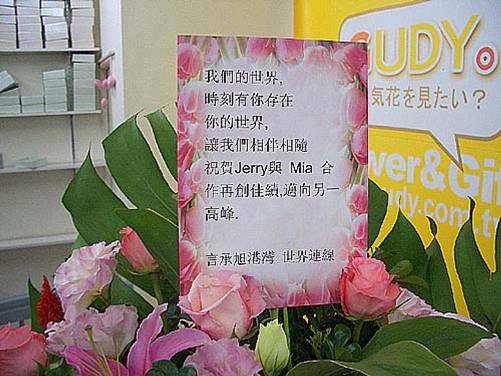 我們的世界,
時刻有你存在
你的世界,
讓我們相伴相隨
祝賀Jerry與 Mia 合
作再創佳績,邁向另一
高峰.
言承旭港灣 世界連線
GUDY。
気花を見たい？
wer&Gif
udy.com.t